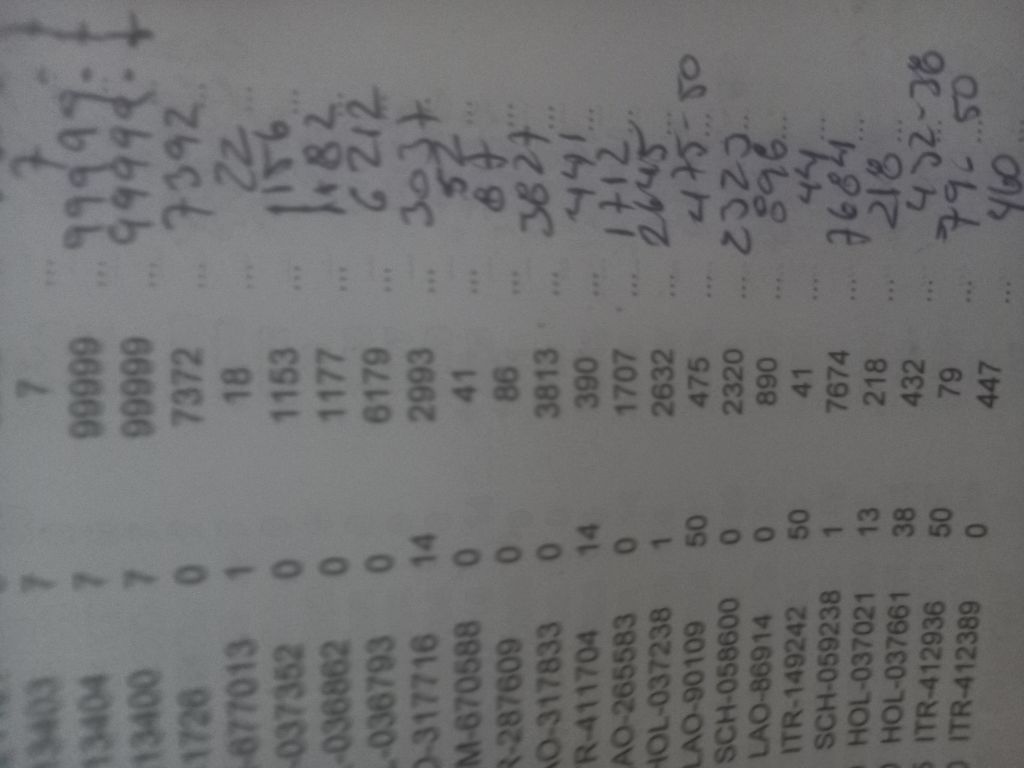 13403 7 7 ... 7
13404 7 99999 ... 99999
13400 7 99999 ... 99999
1726 0 7372 ... 7392 ...
-677013 1 18 ... 22 ...
-037352 0 1153 ... 1156 ...
-036862 0 1177 ... 1182 ...
-036793 0 6179 ... 6212
O-317716 14 2993 ... 3037
M-670588 0 41 ... 52 ...
R-287609 0 86 ... 87 ...
AO-317833 0 3813 ... 3827
R-411704 14 390 ... 441 ...
AO-265583 0 1707 ... 1712 ...
HOL-037238 1 2632 ... 2645
LAO-90109 50 475 ... 475-50
SCH-058600 0 2320 ... 2323
LAO-86914 0 890 ... 896 ...
ITR-149242 50 41 ... 44 ...
SCH-059238 1 7674 ... 7684
HOL-037021 13 218 ... 218 ...
HOL-037661 38 432 ... 432-38
ITR-412936 50 79 ... 50
ITR-412389 0 447 ... 460